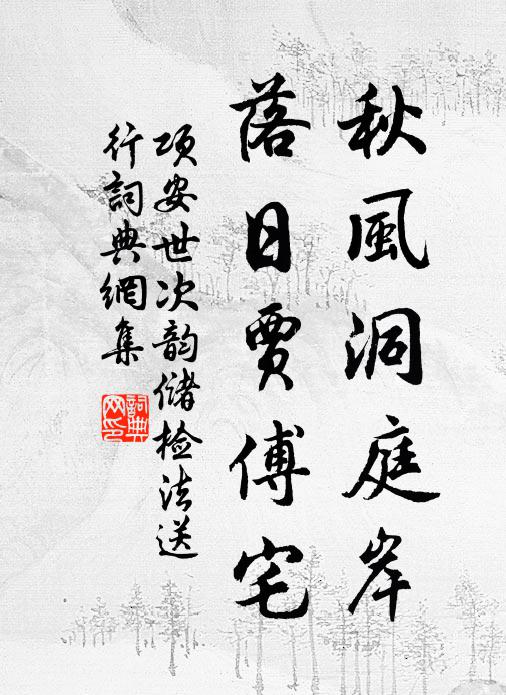 秋風洞庭岸
落日賈傅宅
項安世次韵儲检法送
行詞典網集
詞典
网印